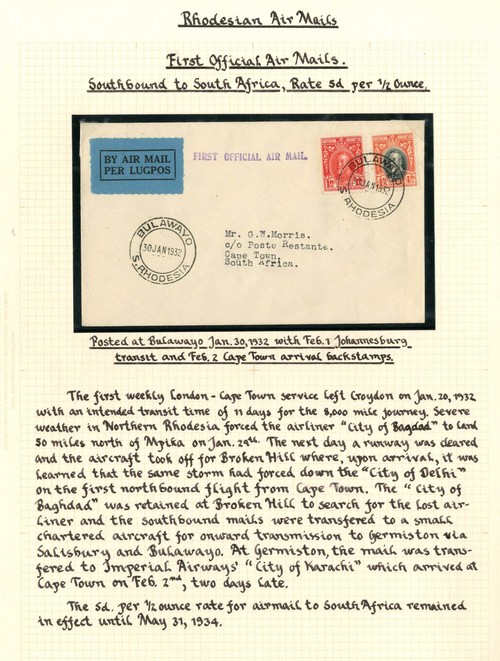 Rhodesian Air Mails
First Official Air Mails.
Southbound to South Africa, Rate 5d per 1/2 Ounce.
BY AIR MAIL
PER LUGPOS
FIRST OFFICIAL AIR MAIL.
BULAWAYO
30 JAN 1932
S. RHODESIA
BULAWAYO
JAN 1932
S. RHODESIA
Mr. G.W.Morris.
c/o Poste Restante.
Cape Town.
South Africa.
Posted at Bulawayo Jan. 30, 1932 with Feb. 1 Johannesburg
transit and Feb. 2 Cape Town arrival backstamps.
The first weekly London - Cape Town service left Croydon on Jan. 20, 1932
with an intended transit time of 11 days for the 8,000 mile journey. Severe
weather in Northern Rhodesia forced the airliner "City of Bagdad" to land
50 miles north of Mpika on Jan. 29th. The next day a runway was cleared
and the aircraft took off for Broken Hill where, upon arrival, it was
learned that the same storm had forced down the "City of Delhi"
on the first northbound flight from Cape Town. The "City of
Baghdad" was retained at Broken Hill to search for the lost air-
liner and the southbound mails were transfered to a small
chartered aircraft for onward transmission to Germiston via
Salisbury and Bulawayo. At Germiston, the mail was trans-
fered to Imperial Airways' "City of Karachi" which arrived at
Cape Town on Feb. 2nd, two days late.
The 5d. per 1/2 ounce rate for airmail to South Africa remained
in effect until May 31, 1934.